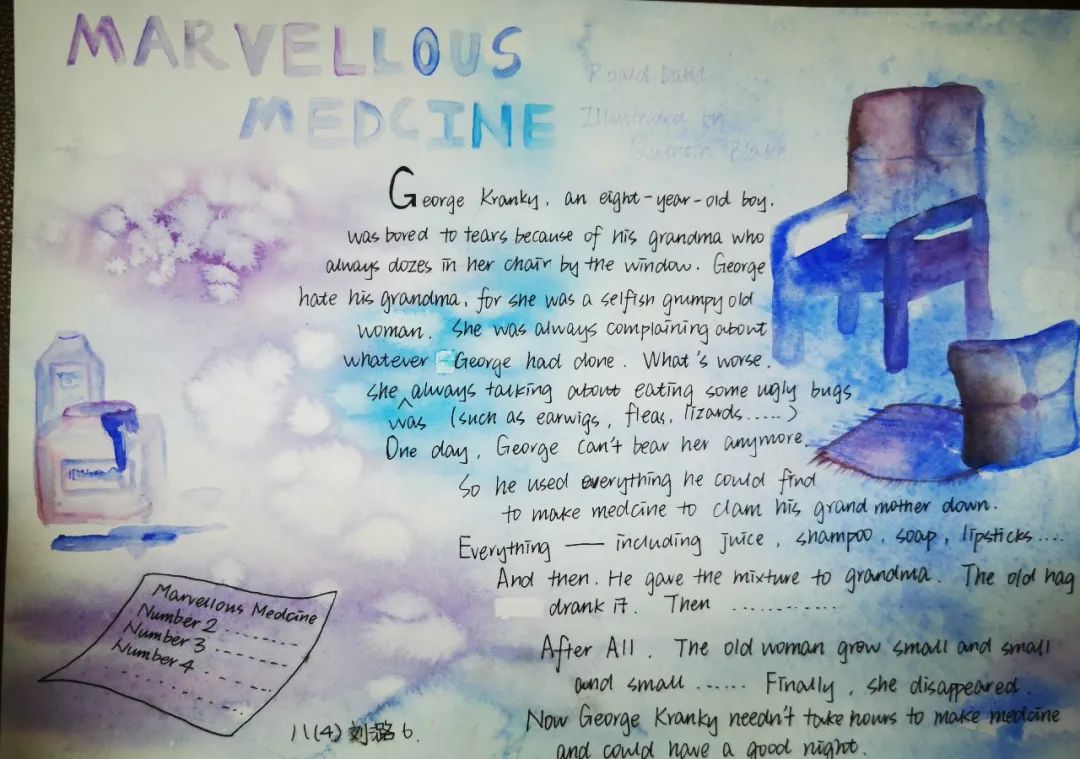 MARVELLOUS
MEDCINE
Roald Dahl
Illustraded by
Quentin Blake
George Kranky, an eight-year-old boy,
was bored to tears because of his grandma who
always dozes in her chair by the window. George
hate his grandma, for she was a selfish grumpy old
woman. She was always complaining about
whatever George had done. What's worse,
she was always talking about eating some ugly bugs
(such as earwigs, fleas, lizards.....)
One day, George can't bear her anymore,
So he used everything he could find
to make medcine to clam his grand mother down.
Everything — including juice, shampoo, soap, lipsticks....
And then. He gave the mixture to grandma. The old hag
drank it. Then ............
After All. The old woman grow small and small
and small ...... Finally, she disappeared.
Now George Kranky needn't take hours to make medcine
and could have a good night.
Marvellous Medcine
Number 2 ......
Number 3 ......
Number 4 ......
八(4) 刘潞 6.